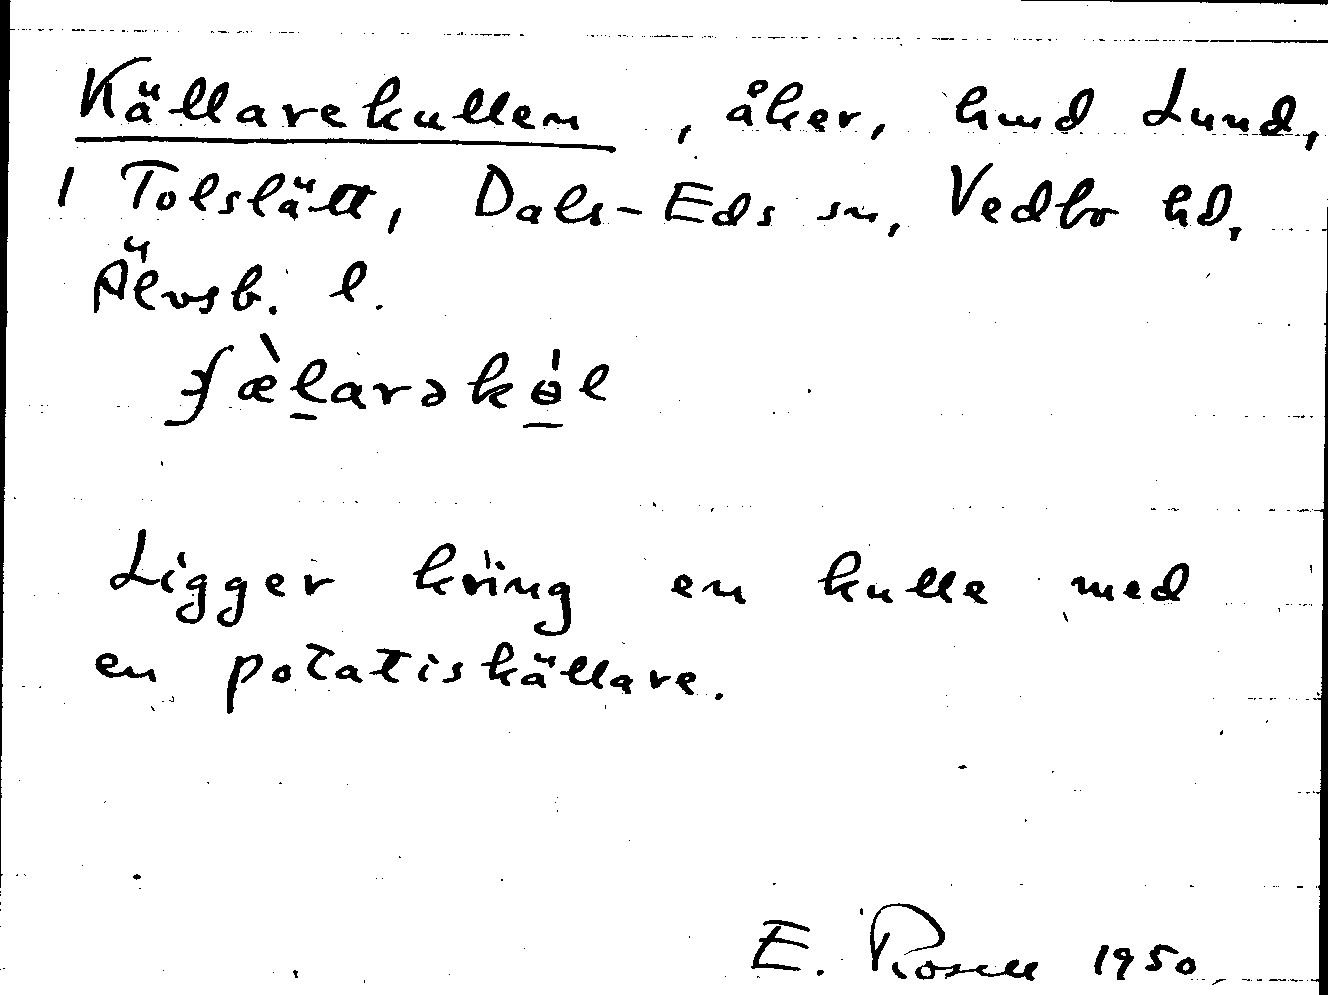 Källarekullen, åker, hmd Lund,
1 Tolslätt, Dals-Eds sn, Vedbo hd,
Älvsb. l.
Ligger kring en kulle med
en potatiskällare.
E. Rosell 1950